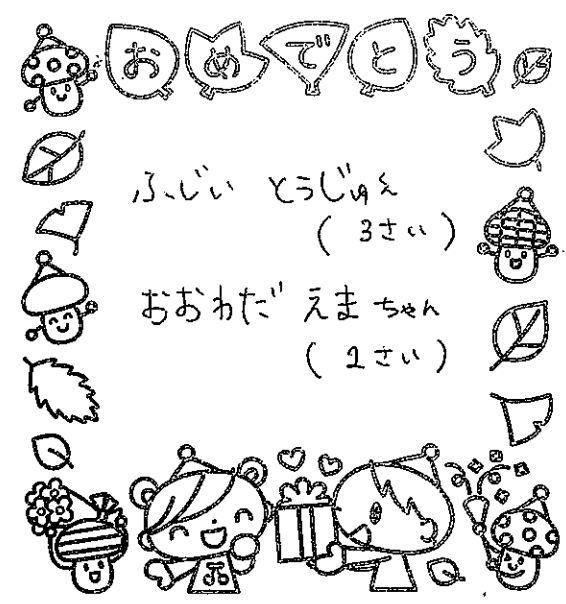 おめでとう
ふじい とうじゅん
( 3さい )
おおわだ えまちゃん
( 2さい )